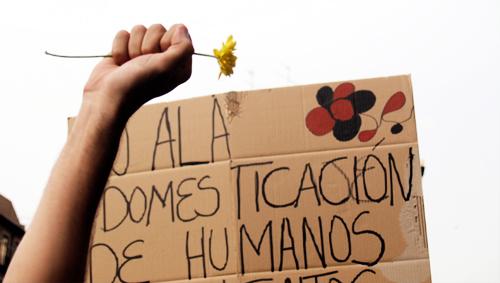 O A LA
DOMESTICACIÓN
DE HUMANOS